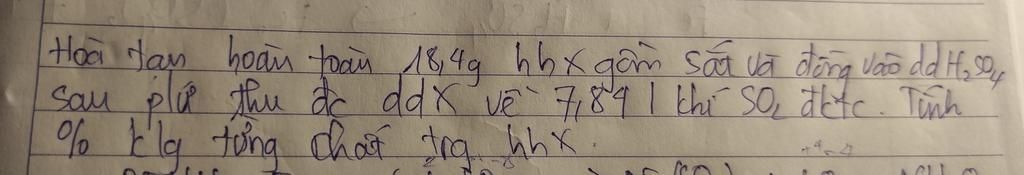 Hoà tan hoàn toàn 18,4g hhX gồm sắt và đồng vào ddH₂SO₄
sau plứ thu đc ddX về 7,84 l khí SO₂ đktc. Tính
% klg từng chất trg hhX.